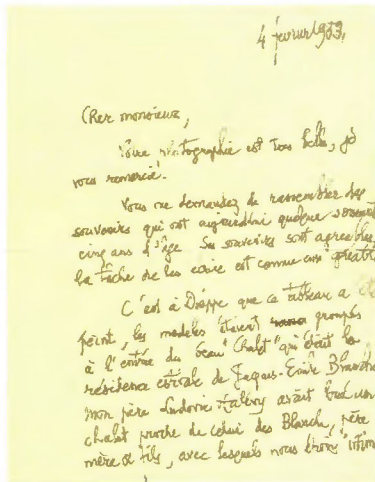 4 fevrier 1953.
Cher monsieur,
Votre photographie est très belle, je
vous remercie.
Vous me demandez de rassembler des
souvenirs qui ont aujourd'hui quelque soixante
cinq ans d'âge. Les souvenirs sont agréables,
la tâche de les écrire est comme une
C'est à Dieppe que ce tableau a
peint, les modèles étaient groupés
à l'entrée du beau "Chalet" qui était la
résidence estivale de Jacques-Emile Blanche
mon père Ludovic Halévy avait
chalet proche de celui des Blanche, père
mère & fils, avec lesquels nous étions